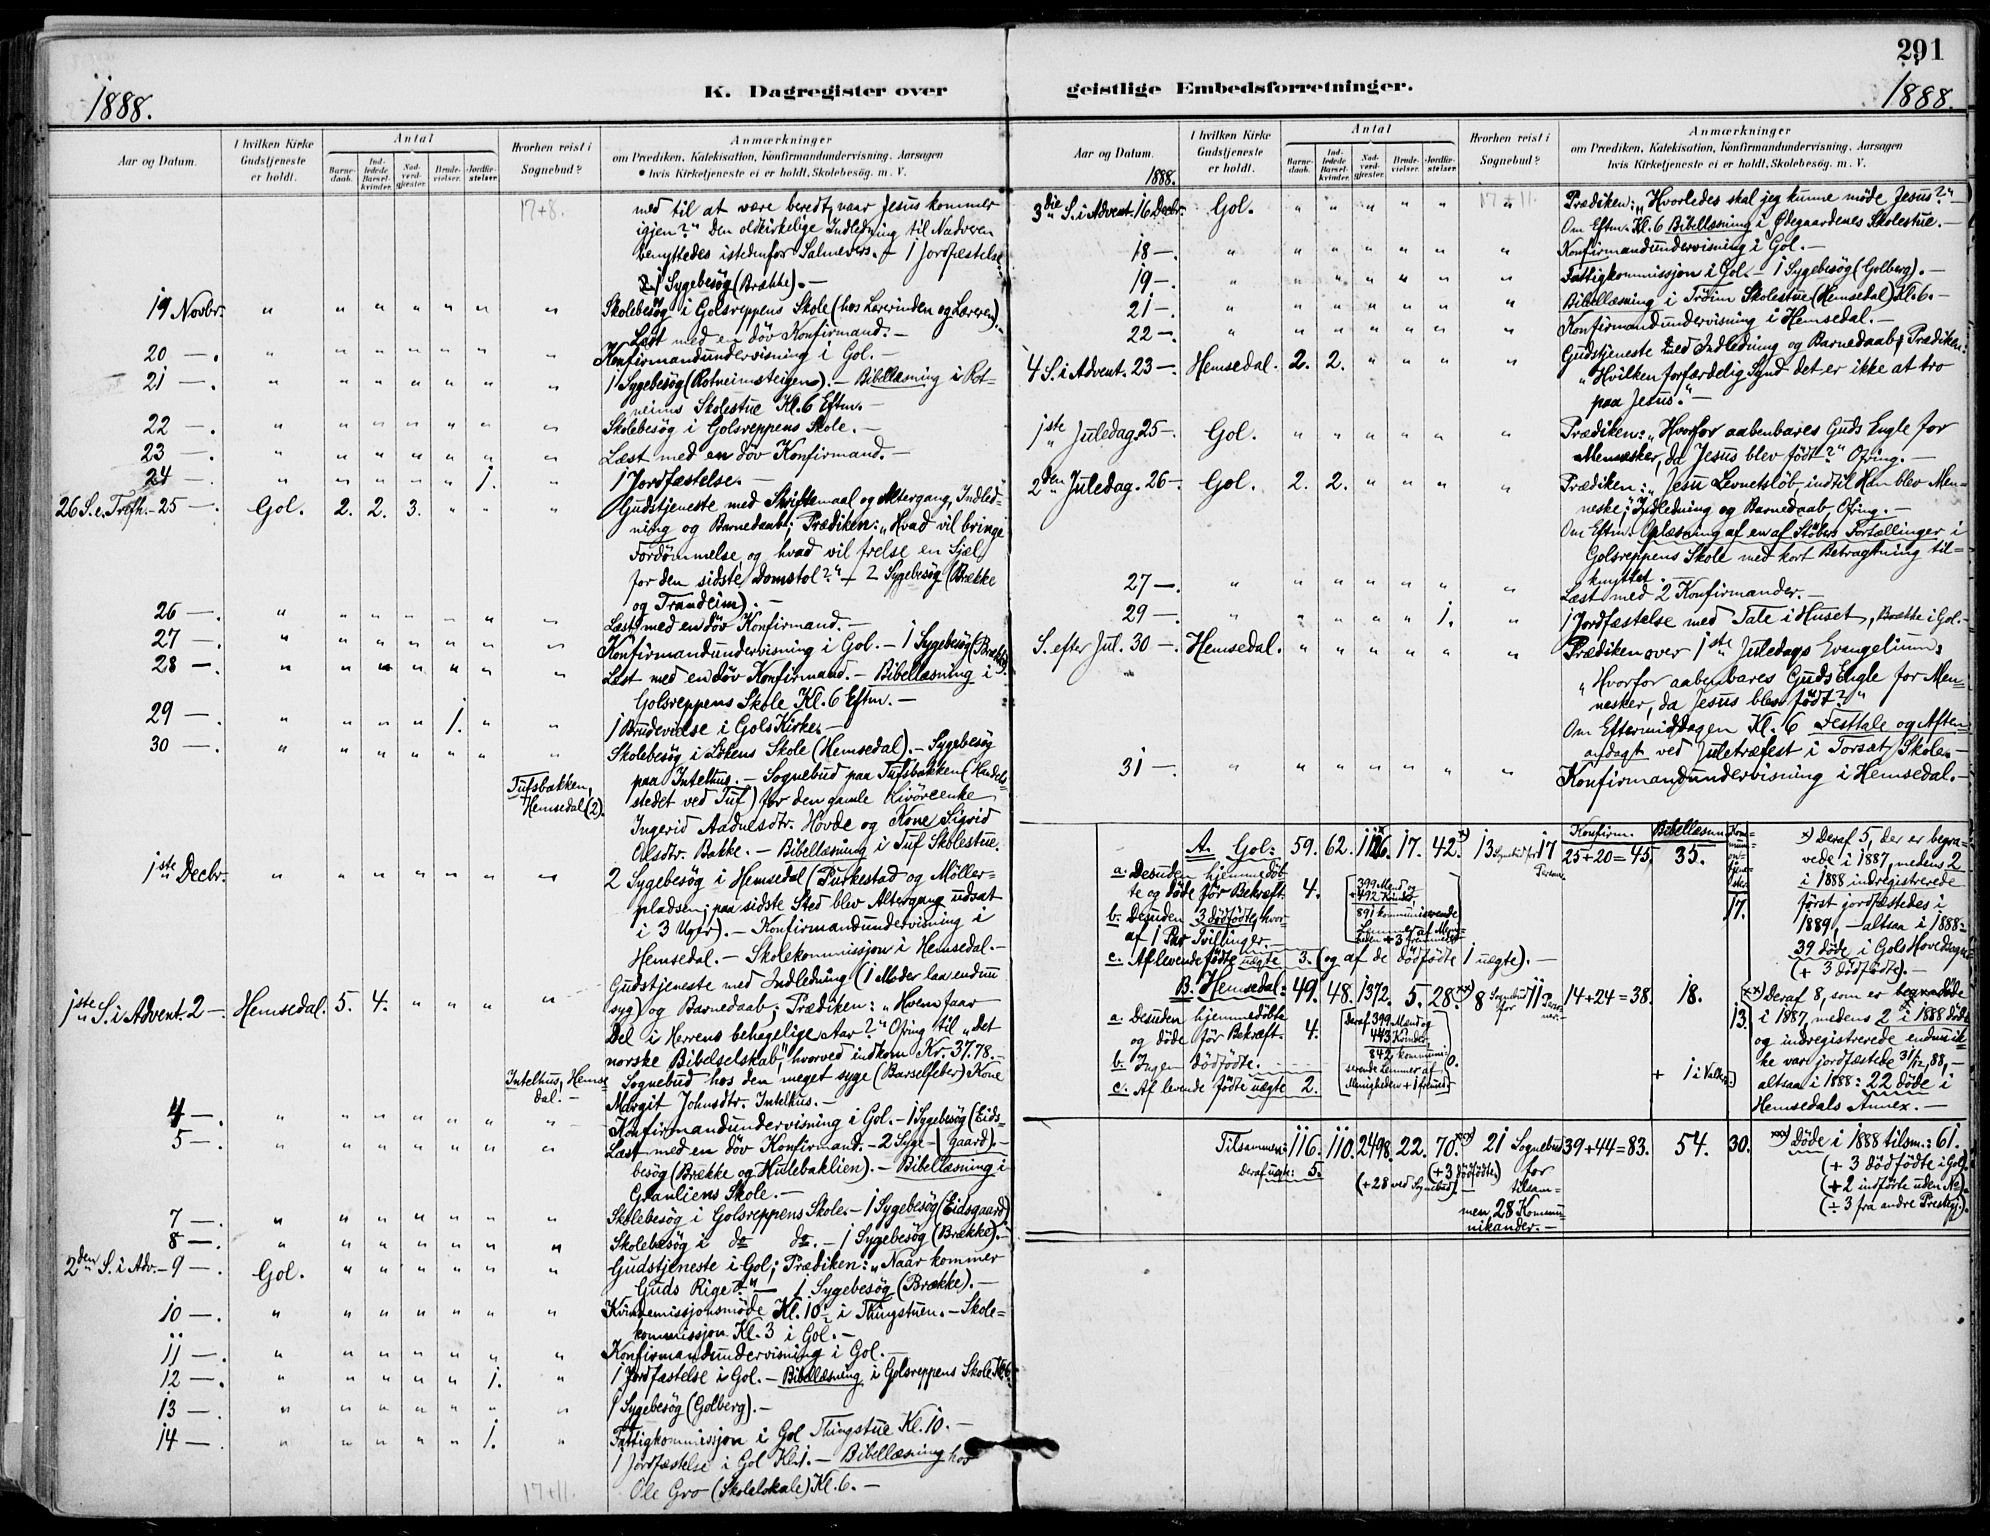 291
1888.
K. Dagregister over geistlige Embedsforretninger.
1888.
Aar og Datum.
I hvilken Kirke Gudstjeneste er holdt.
Antal
Barnedaab.
Indledede Barselkvinder.
Nadverdgjester.
Brudevielser.
Jordfæstelser.
Hvorhen reist i Sognebud?
Anmærkninger
om Prædiken, Katekisation, Konfirmandundervisning, Aarsagen
hvis Kirketjeneste ei er holdt, Skolebesøg. m. V.
17+8.
med til at være beredt, naar Jesus kommer
igjen?" Den oldkirkelige Indledning til Nadveren
benyttedes istedenfor Salmevers. + 1 Jordfæstelse
1 Sygebesøg (Brække). —
19 Novbr. " " " " " " " Skolebesøg i Golsreppens Skole (hos Lærerinden og Læreren).
Læst med en døv Konfirmand. —
20 —. " " " " " " " Konfirmandundervisning i Gol. —
21 —. " " " " " " " 1 Sygebesøg (Rotneimsteigen). — Bibellæsning i Rot-
neims Skolestue Kl. 6 Eftm. —
22 —. " " " " " " " Skolebesøg i Golsreppens Skole. —
23 —. " " " " " " " Læst med en døv Konfirmand. —
24 —. " " " " " 1. " 1 Jordfæstelse. —
26 S. e. Trefh. — 25 —. Gol. 2. 2. 3. " " " Gudstjeneste med Skriftemaal og Altergang, Indled-
ning og Barnedaab; Prædiken: "Hvad vil bringe
Fordømmelse, og hvad vil frelse en Sjæl
for den sidste Domstol?" + 2 Sygebesøg (Brække
og Trandeim). —
26 —. " " " " " " " Læst med en døv Konfirmand. —
27 —. " " " " " " " Konfirmandundervisning i Gol. — 1 Sygebesøg (Brække).
28 —. " " " " " " " Læst med en døv Konfirmand. — Bibellæsning i
Golsreppens Skole Kl. 6 Eftm. —
29 —. " " " " 1. " " 1 Brudevielse i Gols Kirke. —
30 —. " " " " " " Skolebesøg i Løkens Skole (Hemsedal). — Sygebesøg
paa Intelhus. — Sognebud paa Tufsbakken (Handels-
Tufsbakken, Hemsedal (2).
stedet ved Tuf) for den gamle Kirørenke
Ingerid Aadnesdtr. Hovde og Kone Sigrid
Olsdtr. Bakke. — Bibellæsning i Tuf Skolestue.
1ste Decbr. " " " " " " " 2 Sygebesøg i Hemsedal (Purkestad og Møller-
pladsen; paa sidste Sted blev Altergang udsat
i 3 Ugr). — Konfirmandundervisning i
Hemsedal. — Skolekommissjon i Hemsedal. —
1ste S. i Advent. 2 —. Hemsedal. 5. 4. " " " " Gudstjeneste med Indledning (1 Moder laa endnu
syg) og Barnedaab; Prædiken: "Hvem faar
Del i Herrens behagelige Aar?" Ofring til "Det
norske Bibelselskab," hvorved indkom Kr. 37.78. —
Intelhus, Hemsedal. —
Sognebud hos den meget syge (Barselfeber) Kone
Margit Johnsdtr. Intelhus. —
4 —. " " " " " " " Konfirmandundervisning i Gol. — 1 Sygebesøg (Eids-
gaard). —
5 —. " " " " " " " Læst med en døv Konfirmand. — 2 Syge-
besøg (Brække og Hulebaklien). — Bibellæsning i
Granliens Skole. —
7 —. " " " " " " " Skolebesøg i Golsreppens Skole. — 1 Sygebesøg (Eidsgaard).
8 —. " " " " " " " Skolebesøg i do do. — 1 Sygebesøg (Brække). —
2den S. i Adv. — 9 —. Gol. " " " " " " Gudstjeneste i Gol; Prædiken: "Naar kommer
Guds Rige?" — 1 Sygebesøg (Brække). —
10 —. " " " " " " " Kvindemissjonsmøde Kl. 10 i Thingstuen. — Skole-
kommissjon Kl. 3 i Gol. —
11 —. " " " " " " " Konfirmandundervisning i Gol. —
12 —. " " " " " 1. " 1 Jordfæstelse i Gol. — Bibellæsning i Golsreppens Skole Kl. 6.
13 —. " " " " " " " 1 Sygebesøg (Golberg). —
14 —. " " " " " 1. " Fattigkommissjon i Gol Thingstue Kl. 10. —
1 Jordfæstelse i Gol Kl. 1. — Bibellæsning hos
17+11.
Ole Gro (Skolelokale) Kl. 6. —
Aar og Datum. 1888.
I hvilken Kirke Gudstjeneste er holdt.
Antal
Barnedaab.
Indledede Barselkvinder.
Nadverdgjester.
Brudevielser.
Jordfæstelser.
Hvorhen reist i Sognebud?
Anmærkninger
om Prædiken, Katekisation, Konfirmandundervisning, Aarsagen
hvis Kirketjeneste ei er holdt, Skolebesøg. m. V.
17+11.
3die S. i Advent. 16 Decbr. Gol. " " " " " " Prædiken: "Hvorledes skal jeg kunne møde Jesus?"
Om Eftm. Kl. 6 Bibellæsning i Ødegaardenes Skolestue. —
18 —. " " " " " " " Konfirmandundervisning i Gol. —
19 —. " " " " " " " Fattigkommissjon i Gol. — 1 Sygebesøg (Golberg). —
21 —. " " " " " " " Bibellæsning i Trøim Skolestue (Hemsedal) Kl. 6. —
22 —. " " " " " " Konfirmandundervisning i Hemsedal. —
4 S. i Advent. 23 —. Hemsedal. 2. 2. " " " " Gudstjeneste med Indledning og Barnedaab; Prædiken:
"Hvilken forfærdelig Synd det er ikke at tro
paa Jesus." —
1ste Juledag 25 —. Gol. " " " " " " Prædiken: "Hvorfor aabenbares Guds Engle for
Mennesker, da Jesus blev født?" Ofring. —
2den Juledag. 26 —. Gol. 2. 2. " " " " Prædiken: "Jesu Levnetsløb, indtil Han blev Men-
neske"; Indledning og Barnedaab, Ofring. —
Om Eftm. Oplæsning af en af Støbers Fortællinger i
Golsreppens Skole med kort Betragtning til-
knyttet.
27 —. " " " " " " " Læst med 2 Konfirmander. —
29 —. " " " " " 1. " 1 Jordfæstelse med Tale i Huset, Brække i Gol. —
S. efter Jul. 30 —. Hemsedal. " " " " " " Prædiken over 1ste Juledags Evangelium:
"Hvorfor aabenbares Guds Engle for Men-
nesker, da Jesus blev født?"
Om Eftermiddagen Kl. 6 Festtale og Aften-
andagt ved Juletræfest i Torsæt Skole. —
31 —. " " " " " " " Konfirmandundervisning i Hemsedal. —
Konfirm. Bibellæsn. Kommunontjenester
A. Gol: 59. 62. 1126. 17. 42.x) 13 Sognebud for 17 Personer. 25+20=45. 35. 17.
a. Desuden hjemmedøb-
te og døde før Bekræft. 4.
399 Mænd og
+492 Kvinder,
891 kommuniserende
Lemmer af Menig-
heden + 3 fremmede
b. Desuden 3 dødfødte, hvor-
af 1 Par Tvillinger. —
c. Af levende fødte uægte 3. (og af de dødfødte 1 uægte). —
x) Deraf 5, der er begra-
vede i 1887, medens 2
i 1888 indregistrerede
først jordfæstedes i
1889, — altsaa i 1888:
39 døde i Gols Hovedsogn
(+ 3 dødfødte). —
B. Hemsedal: 49. 48. 1372. 5. 28.xx) 8 Sognebud for 11 Personer. 14+24=38. 18. 13.
a. Desuden hjemmedøbte
og døde før Bekræft. 4.
Deraf 399 Mænd og
443 Kvinder,
842 kommuni-
serende Lemmer af
Menigheden + 1 fremd.
b. Ingen dødfødte. 0.
c. Af levende fødte uægte 2.
+ 1 i Valdres)
xx) Deraf 8, som er begravede
i 1887, medens 2 i 1888 døde
og indregistrerede endnu ik-
ke var jordfæstede 31/12 88, —
altsaa i 1888: 22 døde i
Hemsedals Annex. —
Tilsammen: 116. 110. 2498. 22. 70.xxx) 21 Sognebud 39+44=83. 54. 30.
Deraf uægte: 5.
(+28 ved Sognebud). —
(+3 dødfødte)
for
tilsam-
men 28 Kommu-
nikander. —
xxx) Døde i 1888 tilsm.: 61.
(+ 3 dødfødte i Gol).
(+ 2 indførte uden No).
(÷ 3 fra andre Prestgj.).